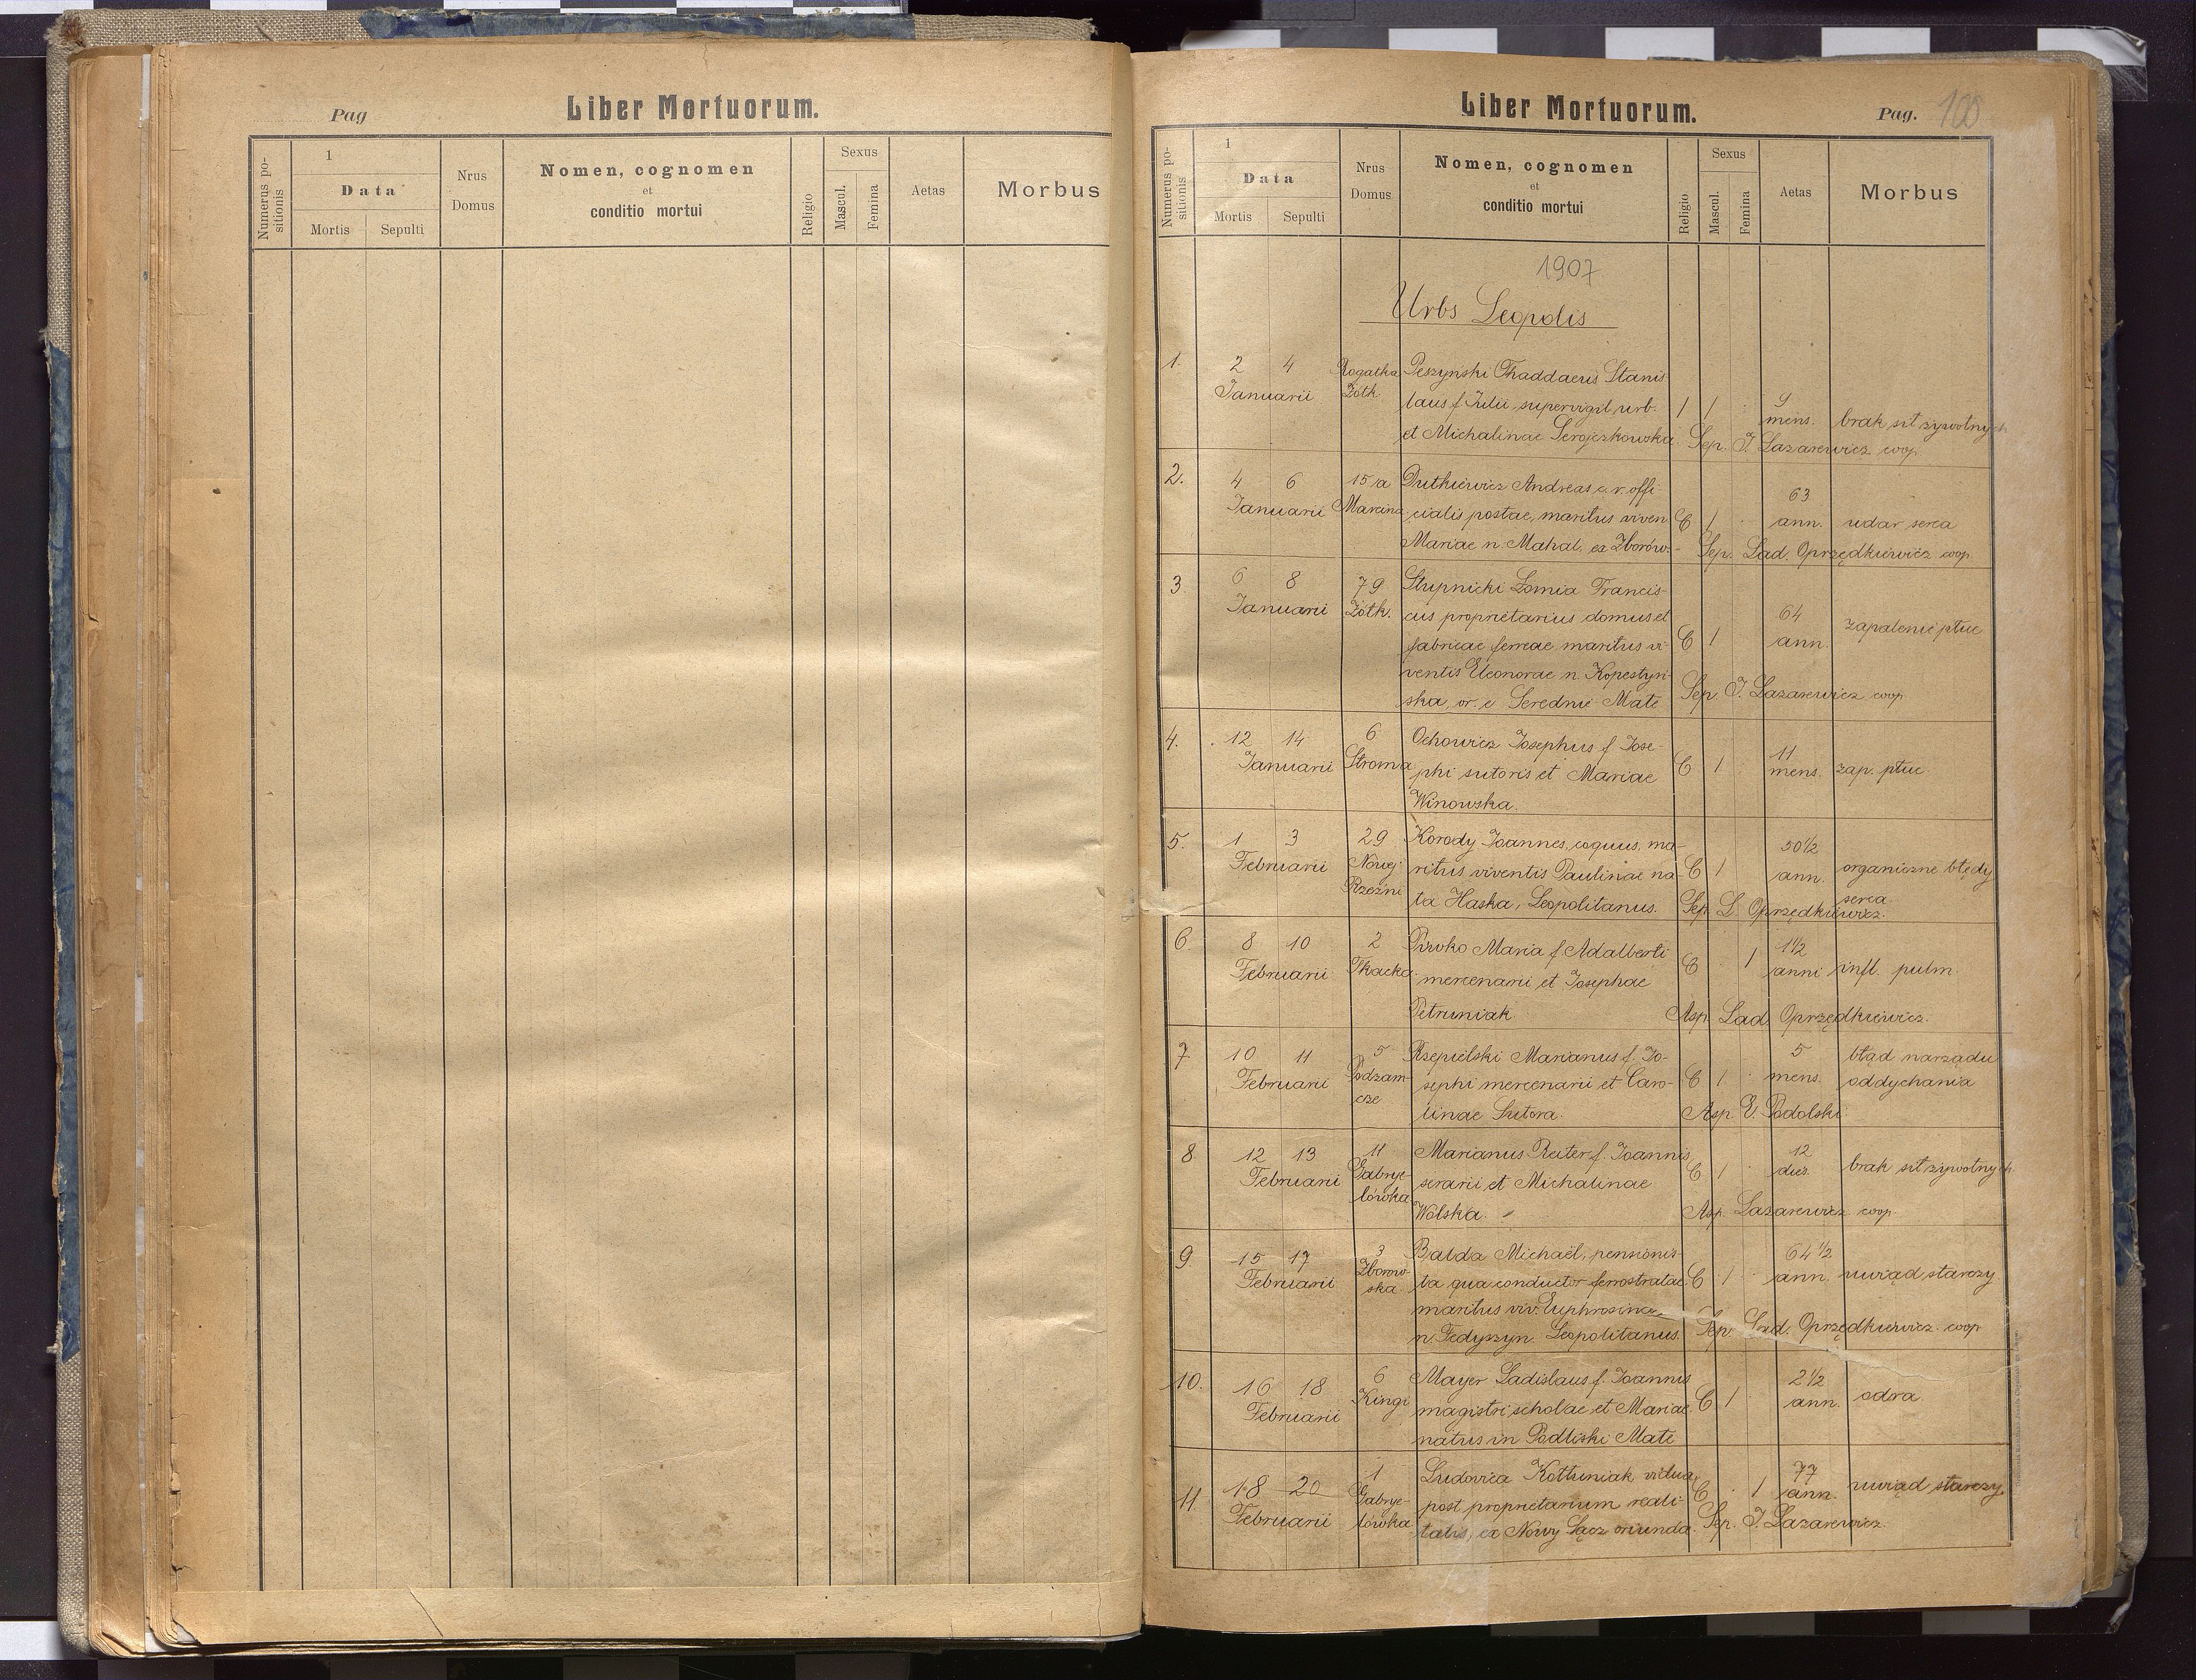 Pag
Liber Mortuorum.
Numerus positionis
1
Data
Mortis
Sepulti
Nrus
Domus
Nomen, cognomen
et
conditio mortui
Religio
Sexus
Mascul.
Femina
Aetas
Morbus
Liber Mortuorum.
Pag. 100
Numerus positionis
1
Data
Mortis
Sepulti
Nrus
Domus
Nomen, cognomen
et
conditio mortui
Religio
Sexus
Mascul.
Femina
Aetas
Morbus
1907
Urbs Leopolis
1. 2 4 Rogatka Peszynski Thaddaeus Stanis-
Januarii Żółk. laus f. Julii, supervigil. urb. 1 1 9 mens. brak sił żywotnych
et Michalinae Serojczkowska. Sep. J. Lazarewicz coop.
2. 4 6 15 a Dutkiewicz Andreas c. r. offi- 63
Januarii Marcina cialis postae, maritus viven. C 1 ann. udar serca
Mariae n. Mahal, ex Zborów. Sep. Lad. Oprzędkiewicz coop.
3 6 8 79 Stupnicki Francis-
Januarii Żółk. cus proprietarius domus et 64
fabricae ferreae maritus vi- C 1 ann. zapalenie płuc
ventis Eleonorae n. Kopestyń-
ska, or. e Serednie Małe Sep. J. Lazarewicz coop.
4. 12 14 6 Ochowicz Josephus f. Jose- 11
Januarii Stroma phi sutoris et Mariae C 1 mens. zap. płuc.
Winowska.
5. 1 3 29 Korody Joannes, coquus, ma- 50½
Februarii Nowej ritus viventis Paulinae na- C 1 ann. organiczne błędy
Rzeźni ta Haska, Leopolitanus. serca
Sep. L. Oprzędkiewicz.
6 8 10 2 Pirko Maria f. Adalberti 1½
Februarii Tkacka mercenarii et Josephae C 1 anni infl. pulm.
Petruniak. Asp. Lad. Oprzędkiewicz.
7. 10 11 5 Rzepielski Marianus f. Jo- 5 błąd narządu
Februarii Podzam- sephi mercenarii et Caro- C 1 mens. oddychania
cze linae Sutora. Asp. E. Podolski.
8. 12 13 11 Marianus Reiter f. Joannis 12
Februarii Gabrye- serarii et Michalinae C 1 dies. brak sił żywotnych
lówka Wolska. Asp. Lazarewicz coop.
9. 15 17 3 Balda Michaël, pensionis- 64½
Februarii Zborow- ta qua conductor ferrostratae C 1 ann. uwiąd starczy
ska maritus viv. Euphrosinae
n. Fedyszyn. Leopolitanus. Sep. Lad. Oprzędkiewicz coop.
10. 16 18 6 Mayer Ladislaus f. Joannis 2½
Februarii Kingi magistri scholae et Mariae C 1 ann. odra
natus in Podliski Małe
11 18 20 1 Ludovica Kottuniak, vidua 77
Februarii Gabrye- post proprietarium reali- C 1 ann. uwiąd starczy
lówka tatis, ex Nowy Sącz oriunda. Sep. J. Lazarewicz.